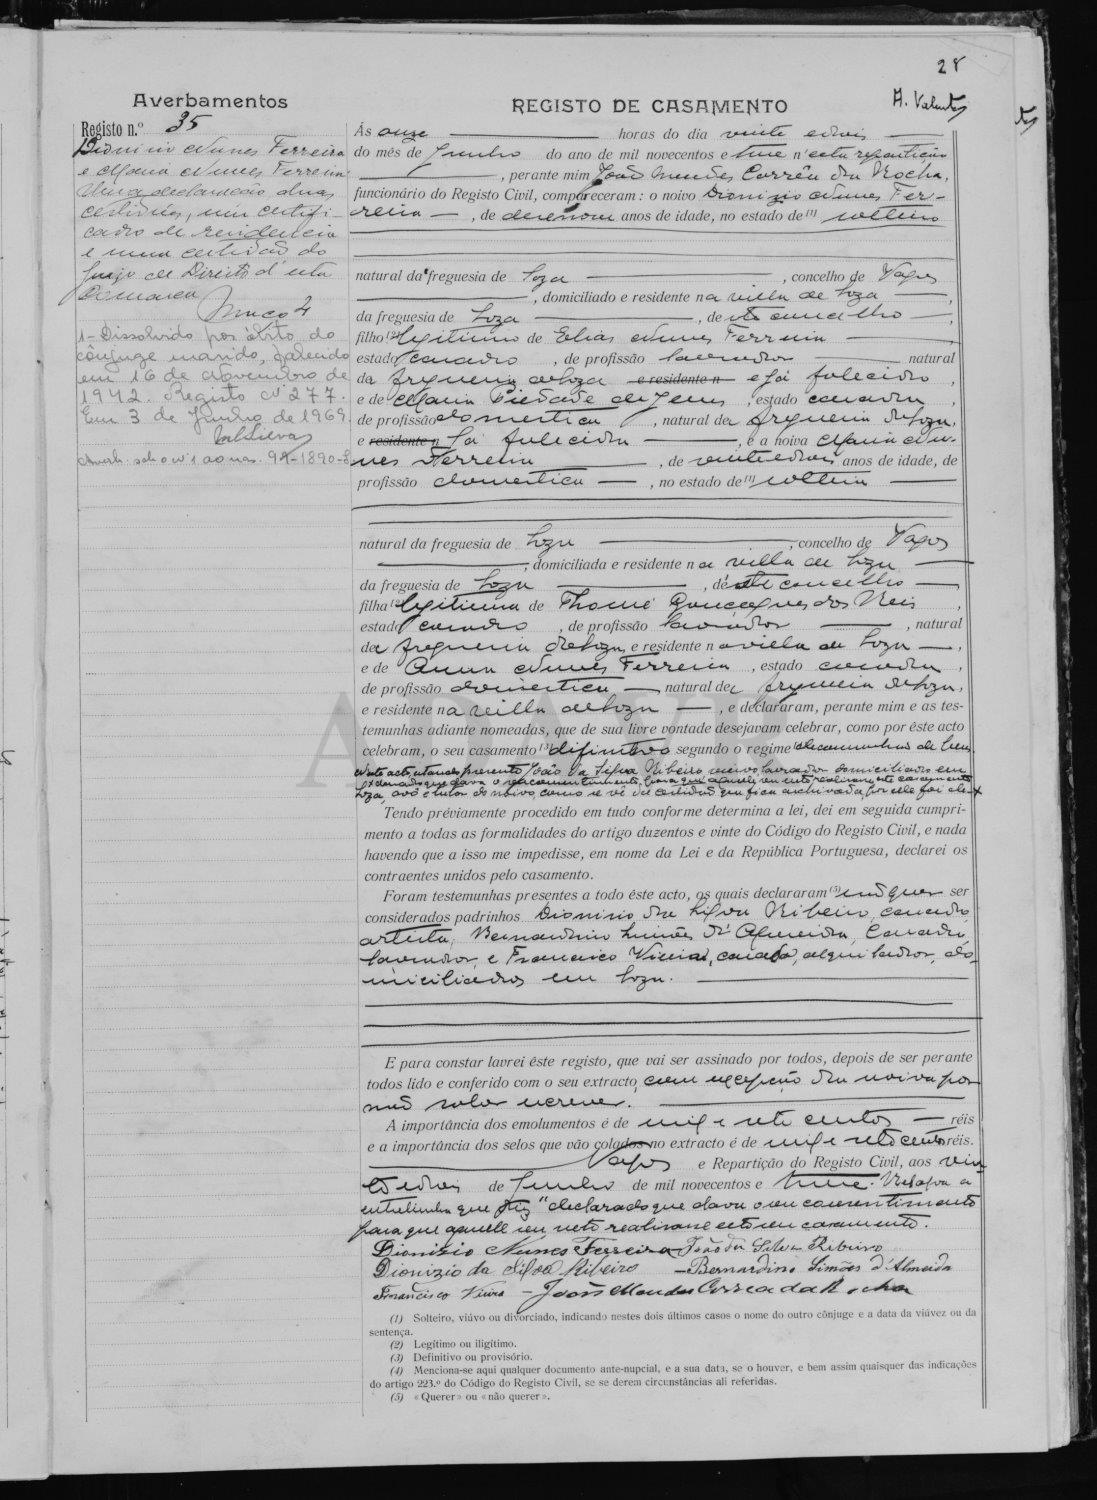 28
A. Valentes
Averbamentos
Registo n.º 35
Dionizio Nunes Ferreira
e Maria Nunes Ferreira
Uma declaração duas
certidões, um certifi-
cado de residencia
e uma certidão do
Juizo de Direito d'esta
Comarca
Maço 2
1- Dissolvido por óbito do
cônjuge marido, falecido
em 16 de Novembro de
1942. Registo Nº 277.
Em 3 de Junho de 1969.
Averb. sob o nº 1 ao nas. 94-1890-
REGISTO DE CASAMENTO
Às onze horas do dia vinte e dois
do mês de Junho do ano de mil novecentos e treze n'esta repartição
, perante mim João Mendes Corrêa da Rocha,
funcionário do Registo Civil, compareceram: o noivo Dionizio Nunes Fer-
reira — , de desenove anos de idade, no estado de (1) solteiro
natural da freguesia de Soza , concelho de Vagos
, domiciliado e residente na villa de Soza ,
da freguesia de Soza , deste concelho ,
filho (2) legitimo de Elias Nunes Ferreira
estado casado , de profissão lavrador natural
da freguesia de Soza e residente n e já falecido ,
e de Maria Piedade de Jesus , estado casada ,
de profissão domestica , natural da freguesia de Soza,
e residente n já falecida , e a noiva Maria Nu-
nes Ferreira , de vinte e dois anos de idade, de
profissão domestica — , no estado de (1) solteira
natural da freguesia de Soza , concelho de Vagos
, domiciliada e residente na villa de Soza
da freguesia de Soza , deste concelho
filha (2) legitima de Thomé Gonçalves dos Reis ,
estado casado , de profissão lavrador , natural
da freguesia de Soza, e residente na villa de Soza — ,
e de Anna Nunes Ferreira , estado casada ,
de profissão domestica — natural da freguesia de Soza,
e residente na villa de Soza — , e declararam, perante mim e as tes-
temunhas adiante nomeadas, que de sua livre vontade desejavam celebrar, como por êste acto
celebram, o seu casamento (3) difinitivo segundo o regime da communhão de bens.
N'este acto estando presente João da Silva Ribeiro viuvo, lavrador domiciliado em
Soza, avô e tutor do noivo, como se vê da certidão que fica archivada, por ele foi
declarado que dava o seu consentimento para que aquelle seu neto realisasse este casamento
Tendo préviamente procedido em tudo conforme determina a lei, dei em seguida cumpri-
mento a todas as formalidades do artigo duzentos e vinte do Código do Registo Civil, e nada
havendo que a isso me impedisse, em nome da Lei e da República Portuguesa, declarei os
contraentes unidos pelo casamento.
Foram testemunhas presentes a todo êste acto, os quais declararam (5) não querer ser
considerados padrinhos Dionizio da Silva Ribeiro, casado,
artista, Bernardino Simões d'Almeida, casado,
lavrador, e Francisco Vieira, casado, alquilador, do-
miciliados em Soza.
E para constar lavrei êste registo, que vai ser assinado por todos, depois de ser perante
todos lido e conferido com o seu extracto, com excepção da noiva por
não saber escrever.
A importância dos emolumentos é de mil e sete centos — réis
e a importância dos selos que vão colados no extracto é de mil e sete centos réis.
Vagos e Repartição do Registo Civil, aos vin-
te e dois de Junho de mil novecentos e treze. Resalva a
entrelinha que diz "declarado que dava o seu consentimento
para que aquelle seu neto realisasse este seu casamento".
Dionizio Nunes Ferreira João da Silva Ribeiro
Dionizio da Silva Ribeiro — Bernardino Simões d'Almeida
Francisco Vieira — João Mendes Corrêa da Rocha
(1) Solteiro, viúvo ou divorciado, indicando nestes dois últimos casos o nome do outro cônjuge e a data da viúvez ou da
sentença.
(2) Legítimo ou iligítimo.
(3) Definitivo ou provisório.
(4) Menciona-se aqui qualquer documento ante-nupcial, e a sua data, se o houver, e bem assim quaisquer das indicações
do artigo 223.º do Código do Registo Civil, se se derem circunstâncias ali referidas.
(5) «Querer» ou «não querer».